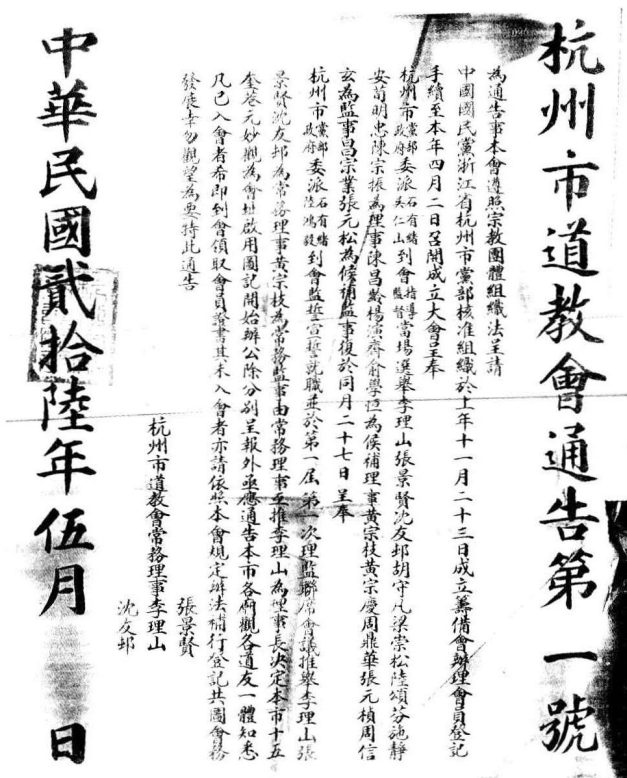 杭州市道教會通告第一號
為通告事本會遵照宗教團體組織法呈請
中國國民黨浙江省杭州市黨部核准組織於上年十一月二十三日成立籌備會辦理會員登記
手續至本年四月二日召開成立大會呈奉
杭州市黨部政府委派石有緒吳仁山到會指導監督當場選舉李理山張景賢沈友邨胡守凡梁崇松陸頌芬施靜
安荀明忠陳宗振為理事陳昌齡楊演齊俞學恒為候補理事黃宗枝黃宗慶周鼎華張元楨周信
玄為監事昌宗業張元松為候補監事復於同月二十七日呈奉
杭州市黨部政府委派石有緒陸鴻毅到會監誓宣誓就職並於第一屆第一次理監聯席會議推舉李理山張
景賢沈友邨為常務理事黃宗枝為常務監事由常務理事互推李理山為理事長決定本市十五
奎巷元妙觀為會址啟用圖記開始辦公除分別呈報外亟應通告本市各廟觀各道友一體知悉
凡已入會者希即到會領取會員證書其未入會者亦請依照本會規定辦法補行登記共圖會務
發展幸勿觀望為要持此通告
張景賢
杭州市道教會常務理事李理山
沈友邨
中華民國貳拾陸年伍月 日